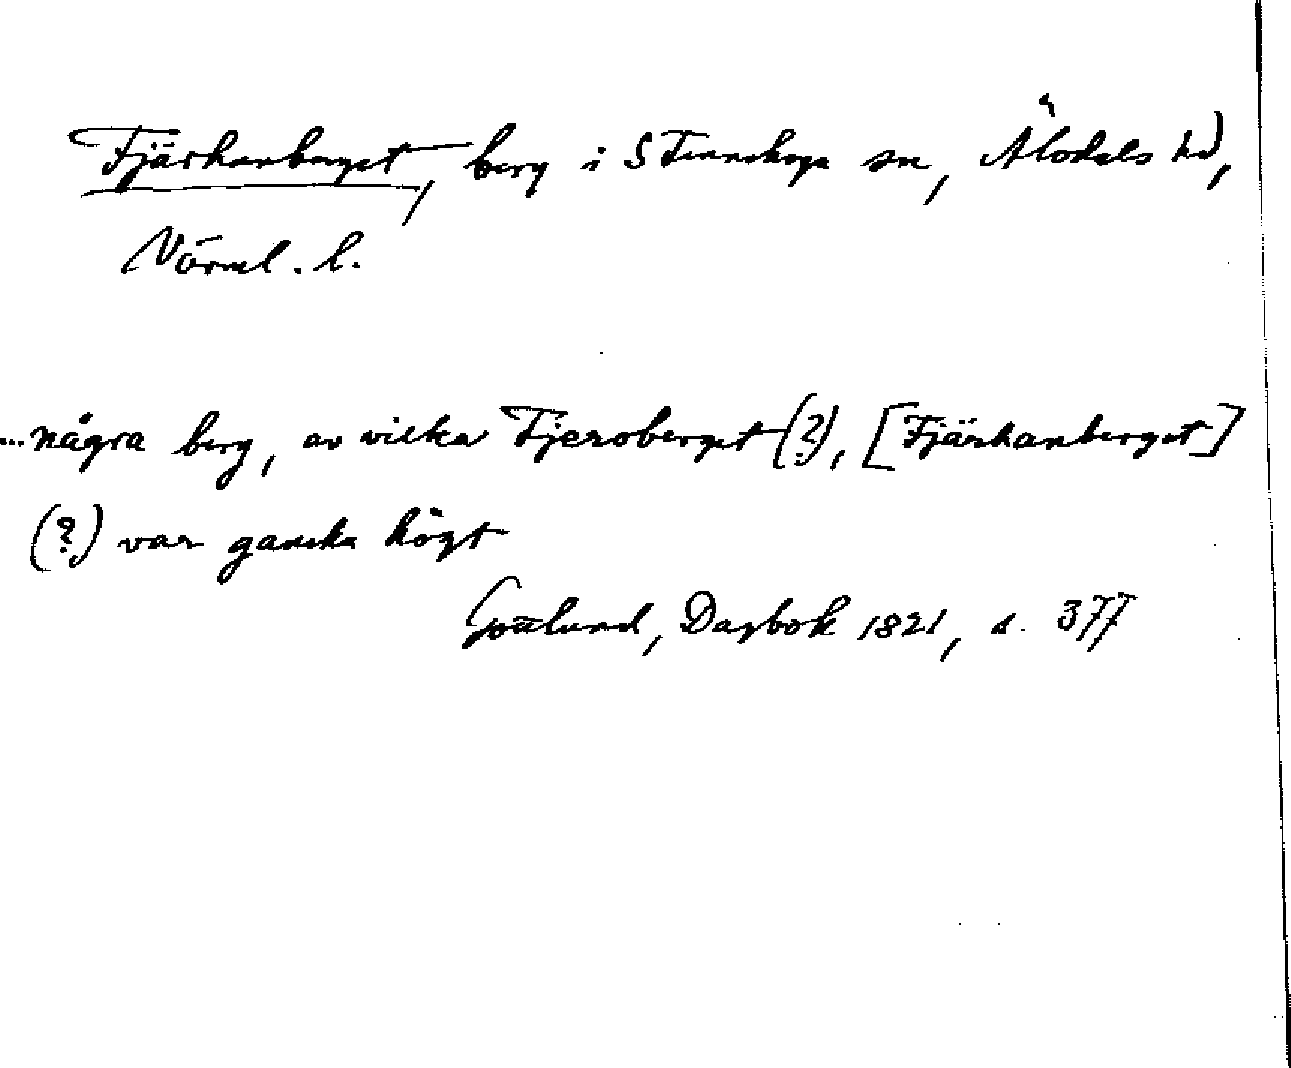 Fjärhanberget, berg i S Finnskoga sn, Älvdals hd,
Värml. l.
... några berg, av vilka Fjeroberget (?), [Fjärhanberget]
(?) var ganska högt
Gottlund, Dagbok 1821, s. 377